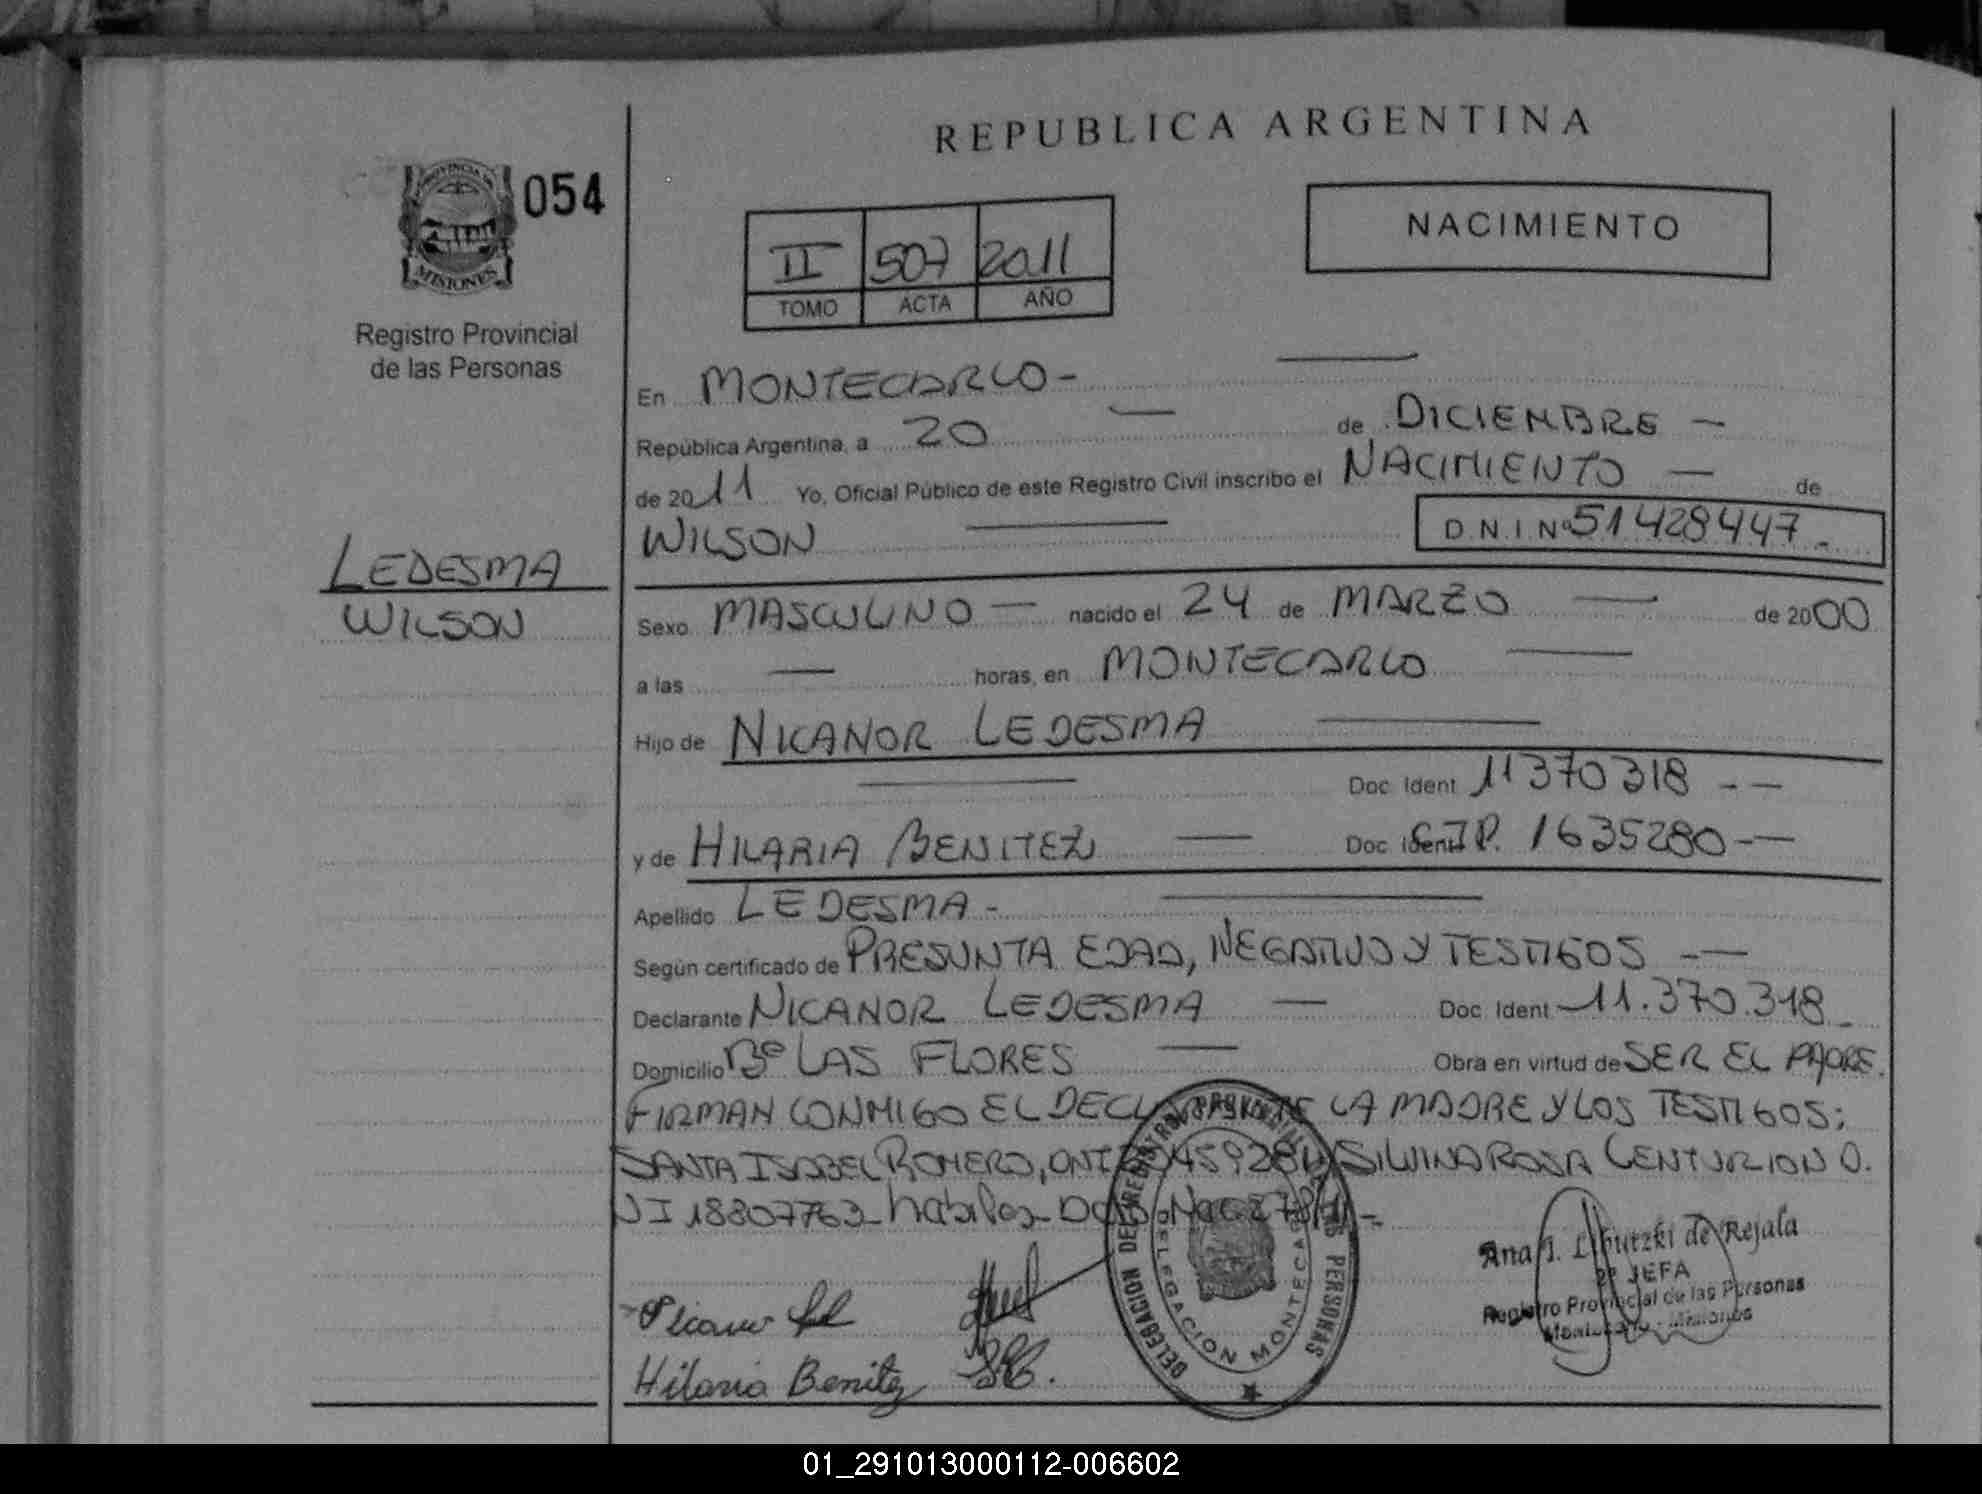 REPUBLICA ARGENTINA
PROVINCIA DE
MISIONES
054
Registro Provincial
de las Personas
II 507 2011
TOMO ACTA AÑO
NACIMIENTO
En MONTECARLO-
República Argentina, a 20 — de DICIEMBRE —
de 2011 Yo, Oficial Público de este Registro Civil inscribo el NACIMIENTO — de
WILSON D.N.I Nº 51428447-
LEDESMA
WILSON
Sexo MASCULINO — nacido el 24 de MARZO — de 2000
a las — horas, en MONTECARLO —
Hijo de NICANOR LEDESMA —
— Doc. Ident 11370318 - -
y de HILARIA BENITEZ — Doc. Ident C.I.P. 1635280 - —
Apellido LEDESMA - —
Según certificado de PRESUNTA EDAD, NEGATIVO Y TESTIGOS - —
Declarante NICANOR LEDESMA — Doc. Ident 11.370.318-
Domicilio Bº LAS FLORES — Obra en virtud de SER EL PADRE.
FIRMAN CONMIGO EL LA MADRE Y LOS TESTIGOS;
SANTA ISABEL ROMERO, SILVINA ROSA CENTURION D.
NI 18807763 habiles-
DELEGACION DEL REGISTRO PROVINCIAL DE LAS PERSONAS
DELEGACION MONTECARLO
Ana I. de Rejala
2ª JEFA
Registro Provincial de las Personas
Montecarlo - Misiones
Hilaria Benitez
01_291013000112-006602